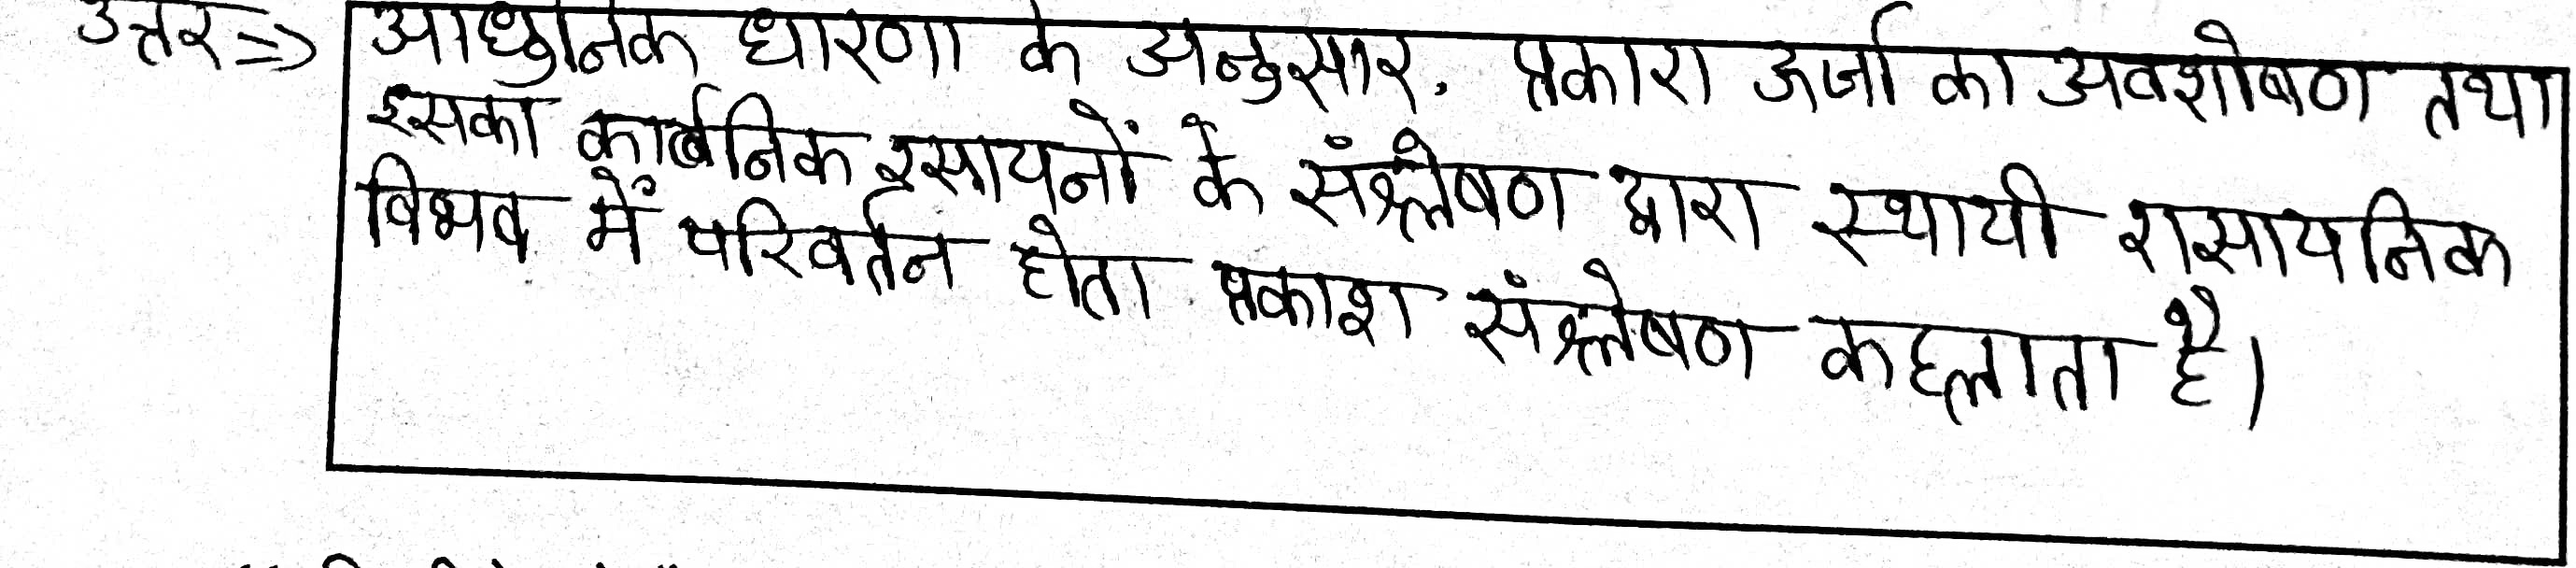 उत्तर => आधुनिक धारणा के अनुसार, प्रकाश ऊर्जा का अवशोषण तथा
इसका कार्बनिक रसायनों के संश्लेषण द्वारा स्थायी रासायनिक
विभव में परिवर्तन होता प्रकाश संश्लेषण कहलाता है।